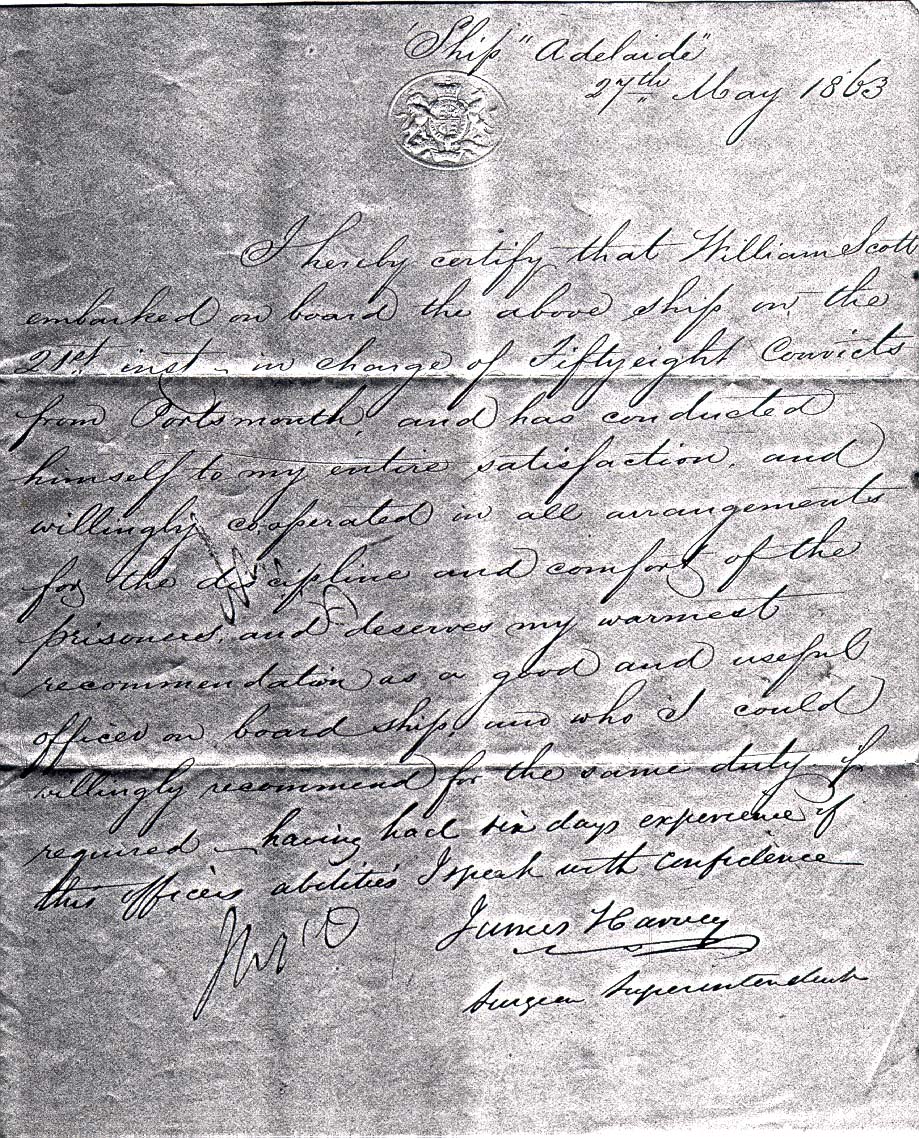 Ship "Adelaide"
27th May 1863
I hereby certify that William Scott
embarked on board the above ship on the
21st inst - in charge of Fiftyeight Convicts
from Portsmouth, and has conducted
himself to my entire satisfaction, and
willingly cooperated in all arrangements
for the discipline and comfort of the
prisoners, and deserves my warmest
recommendation as a good and useful
officer on board ship, and who I could
willingly recommend for the same duty if
required - having had six days experience of
this officers abilities I speak with confidence
James Harvey
Surgeon Superintendent